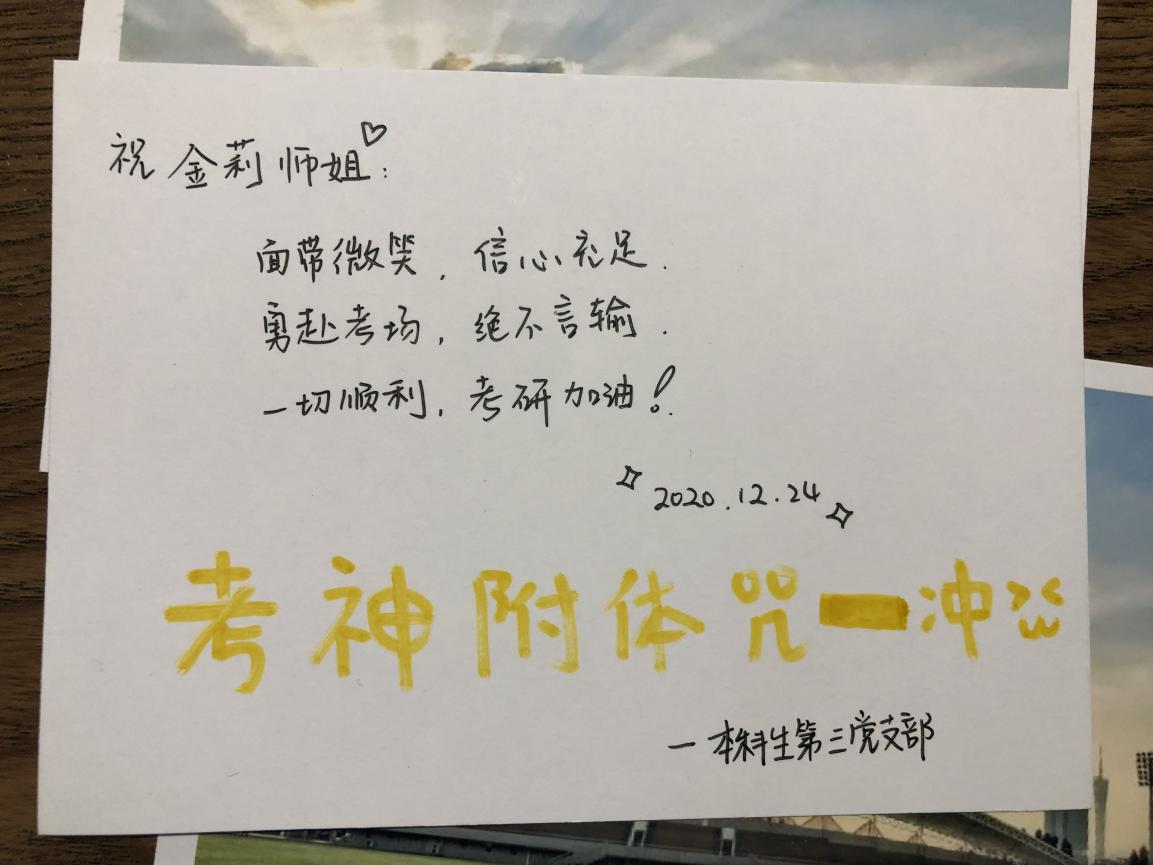 祝金莉师姐♡:
面带微笑，信心充足．
勇赴考场，绝不言输．
一切顺利，考研加油！
2020.12.24
考神附体咒一冲
一本科生第三党支部